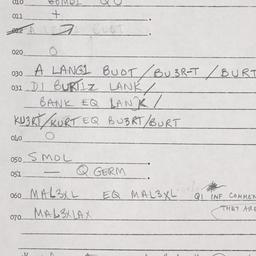 010 QU
011 +
012
020 O
030 A LANG1 BUDT/BU3R-T / BURT
031 D1 BURT1Z LANK/
BANK EQ LANK /
KU3RT/KURT EQ BU3RT/BURT
040 O
050 SMDL
051 — Q GERM
060 MAL3XL EQ MAL3XL Q1 INF COMMEN
070 MAL3X1AX THEY ARE